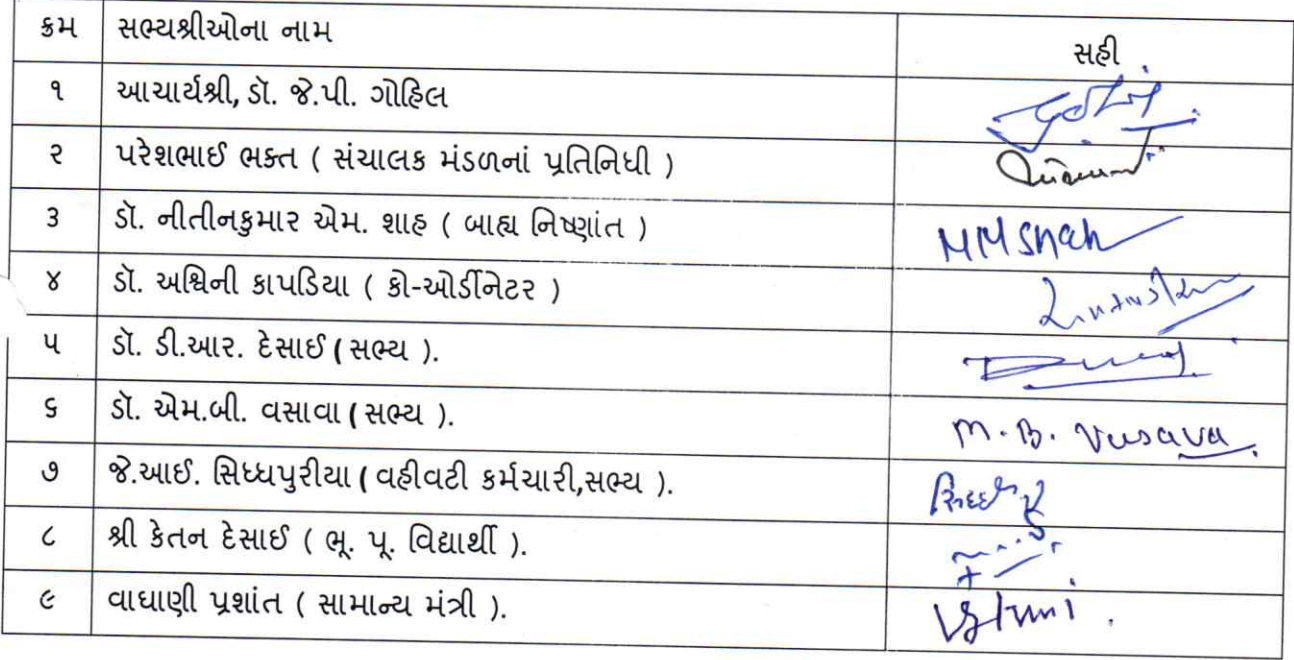 ક્રમ સભ્યશ્રીઓના નામ સહી
૧ આચાર્યશ્રી, ડૉ. જે.પી. ગોહિલ
૨ પરેશભાઈ ભક્ત ( સંચાલક મંડળનાં પ્રતિનિધી )
૩ ડૉ. નીતીનકુમાર એમ. શાહ ( બાહ્ય નિષ્ણાંત ) MMShah
૪ ડૉ. અશ્વિની કાપડિયા ( કો-ઓર્ડીનેટર )
૫ ડૉ. ડી.આર. દેસાઈ ( સભ્ય ).
૬ ડૉ. એમ.બી. વસાવા ( સભ્ય ). M. B. Vasava
૭ જે.આઈ. સિધ્ધપુરીયા ( વહીવટી કર્મચારી,સભ્ય ).
૮ શ્રી કેતન દેસાઈ ( ભૂ. પૂ. વિદ્યાર્થી ).
૯ વાઘાણી પ્રશાંત ( સામાન્ય મંત્રી ).